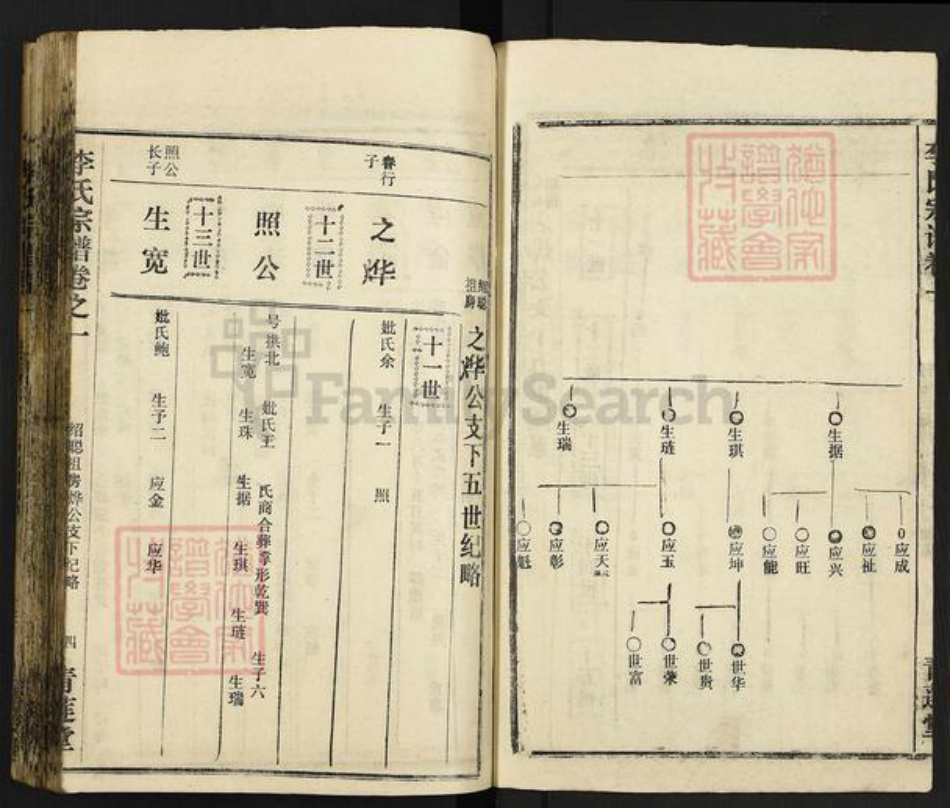 李氏宗谱卷之一
生据
生琪
生琏
生瑞
应成
应祉
应兴
应旺
应能
应坤
应玉
应天
应彰
应魁
世华
世贵
世荣
世富
青莲堂
之烨公支下五世纪略
十一世
行
子
之烨
妣氏余 生子一 照
十二世
照公
号拱北 妣氏王 氏商合葬掌形乾巽 生子六
生宽 生珠 生据 生琪 生琏 生瑞
十三世
照公
长子
生宽
妣氏鲍 生子二 应金 应华
李氏宗谱卷之一
绍聪祖房烨公支下纪略
四
青莲堂
FamilySearch